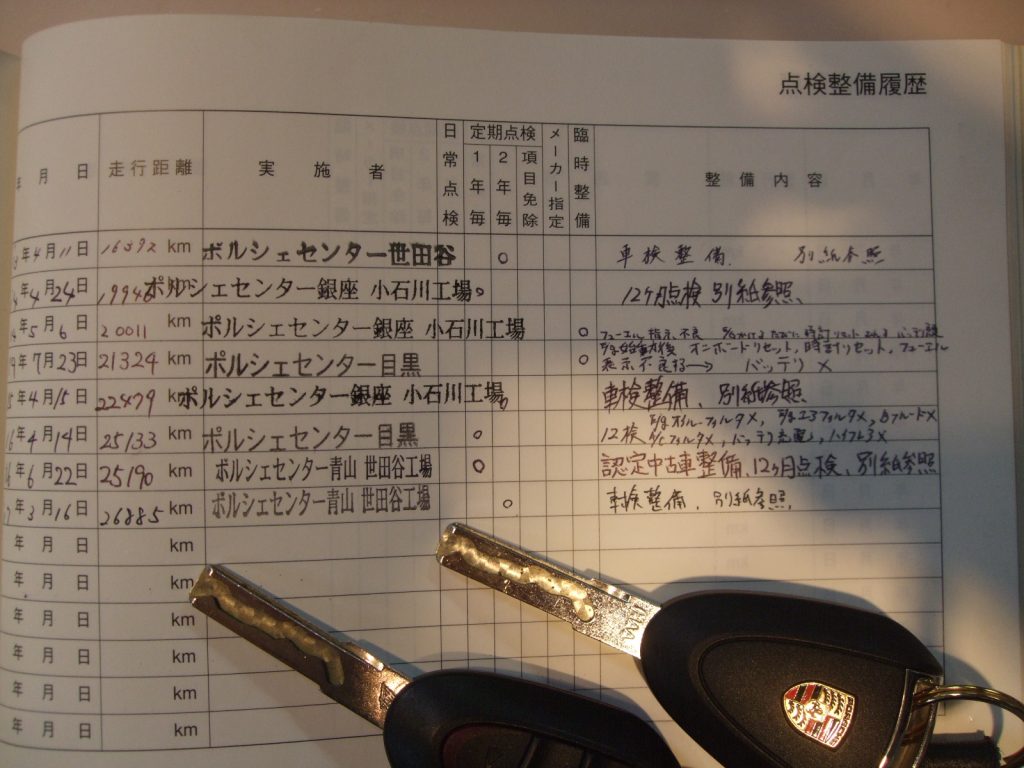 点検整備履歴
年 月 日 走行距離 実施者 日常点検 定期点検 1年毎 2年毎 項目免除 メーカー指定 臨時整備 整備内容
年4月11日 16592 km ポルシェセンター世田谷 ○ 車検整備. 別紙参照
年4月24日 19946 ポルシェセンター銀座 小石川工場 ○ 12ヶ月点検 別紙参照、
年5月6日 20011 km ポルシェセンター銀座 小石川工場 ○ フューエル 指示不良
年7月23日 21324 km ポルシェセンター目黒 ○ オンボードリセット, 時計リセット, フューエル
表示不良 バッテリ ×
年4月15日 22479 ポルシェセンター銀座 小石川工場 ○ 車検整備、別紙参照
6年4月14日 25133 km ポルシェセンター目黒 ○ 12検
年6月22日 25190 km ポルシェセンター青山 世田谷工場 ○ 認定中古車整備、12ヶ月点検、別紙参照
年3月16日 26885 km ポルシェセンター青山 世田谷工場 ○ 車検整備、別紙参照、
年 月 日 km
年 月 日 km
年 月 日 km
年 月 日 km
年 月 日 km
年 月 日 km
PORSCHE